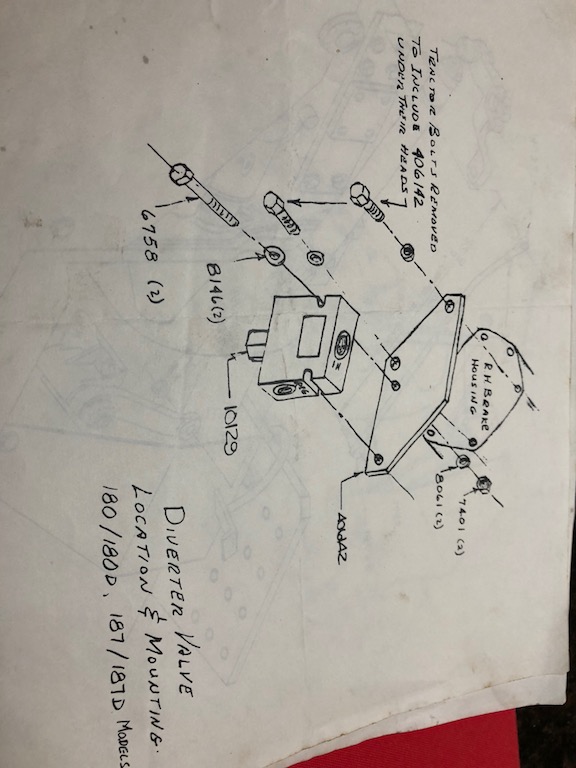 TRACTOR BOLTS REMOVED
TO INCLUDE 406142
UNDER THEIR HEADS
6758 (2)
8146(2)
10129
IN
R.H. BRAKE
HOUSING
8061(2)
7401 (2)
DIVERTER VALVE
LOCATION & MOUNTING.
180/180D, 187/187D MODELS